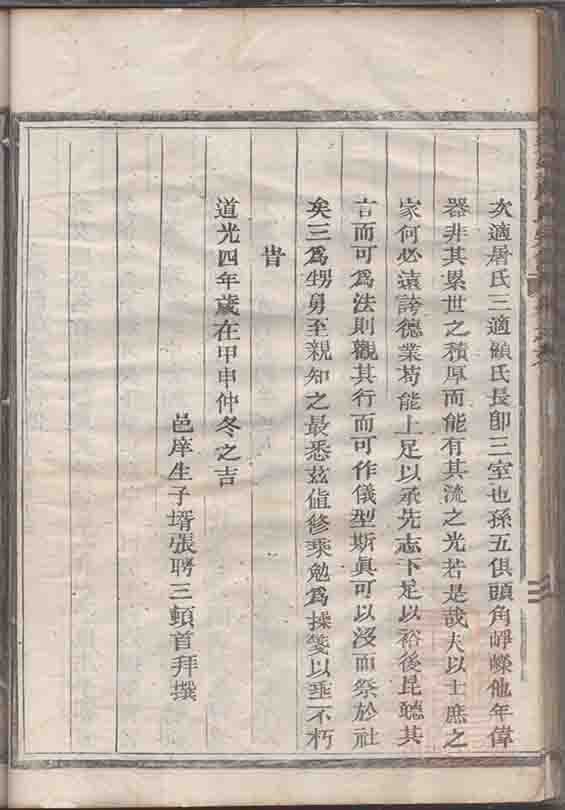 次適屠氏三適顧氏長卽三室也孫五俱頭角崢嶸他年偉
器非其累世之積厚而能有其流之光若是哉夫以士庶之
家何必遠誇德業苟能上足以承先志下足以裕後昆聽其
言而可爲法則觀其行而可作儀型斯眞可以沒而祭於社
矣三爲甥舅至親知之最悉玆値修乘勉爲操箋以垂不朽
旹
道光四年歲在甲申仲冬之吉
邑庠生子壻張聘三頓首拜撰